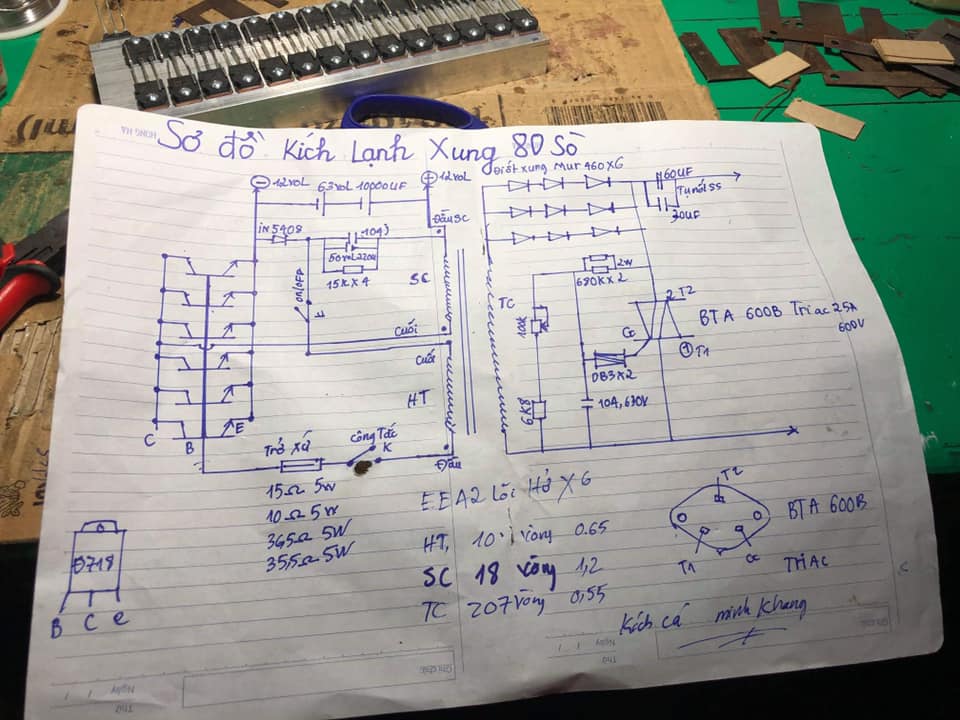 Sơ đồ Kích Lạnh Xung 80 Sò
Điốt xung Mur 460X6
⊖ 12vol 63vol 10000UF ⊕ 12vol
60UF
Tụ nối SS
30UF
Đầu SC
iN5408
104J
50vol220U
15K X 4
on/OFF
SC
Cuối
Cuối
HT
Đầu
TC
100K
6K8
2W
680K X 2
T2
G
T1
BTA 600B Triac 25A
600V
DB3X2
104,630V
C B E
Trở Xứ
Công Tắc
K
15Ω 5w
10Ω 5w
365Ω 5W
35,5Ω 5W
E.E 42 Lõi Hở X 6
HT, 10 vòng 0.65
SC 18 vòng 1,2
TC 207 vòng 0,55
D718
B C e
T2
BTA 600B
T1
TRiAC
Kích cá minh Khang
HONG HA
Ngày
Thứ
Ghi chú:
Ngày
Thứ
Ghi chú: